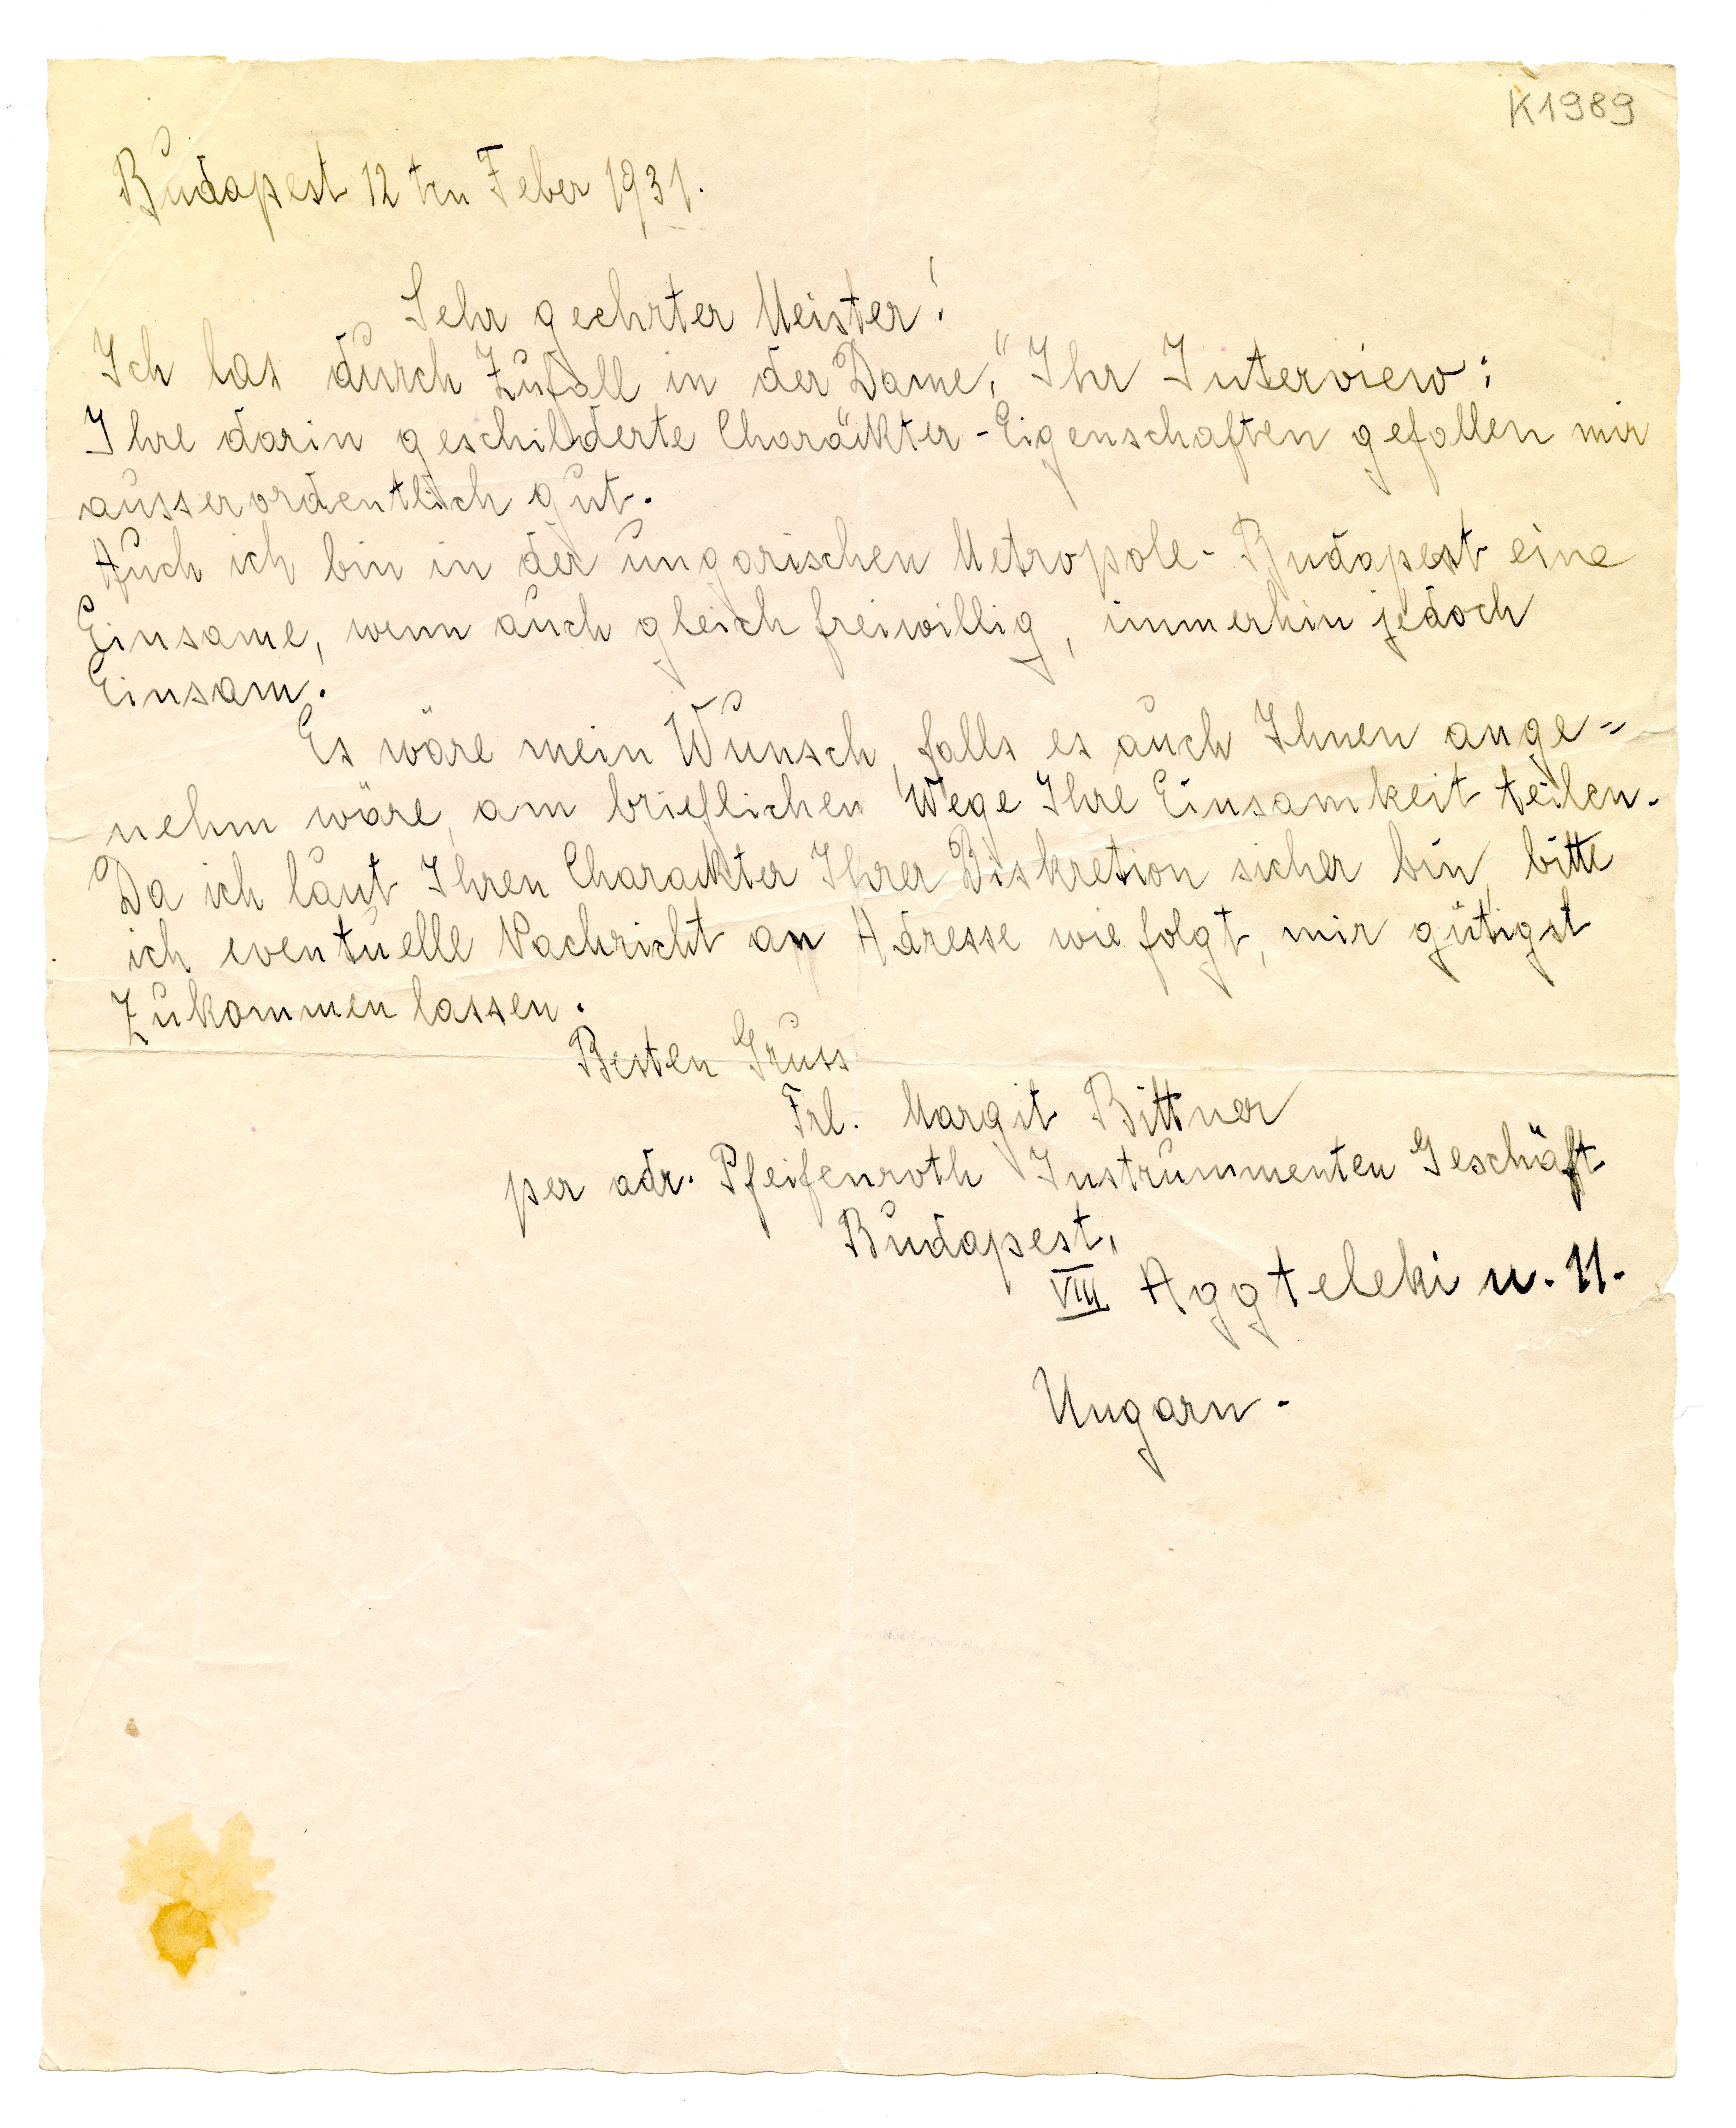 K1989
Budapest 12 ten Feber 1931.
Sehr geehrter Meister!
Ich las durch Zufall in der "Dame," Ihr Interview:
Ihre darin geschilderte Charackter-Eigenschaften gefallen mir
ausserordentlich gut.
Auch ich bin in der ungarischen Metropole-Budapest eine
Einsame, wenn auch gleich freiwillig, immerhin jedoch
Einsam.
Es wäre mein Wunsch, falls es auch Ihnen ange=
nehm wäre, am brieflichen Wege Ihre Einsamkeit teilen.
Da ich laut Ihren Charackter Ihrer Diskretion sicher bin, bitte
ich eventuelle Nachricht an Adresse wie folgt, mir gütigst
Zukommen lassen.
Besten Gruss
Frl. Margit Bittner
per adr. Pfeifenroth Instrummenten Geschäft
Budapest,
VIII Aggteleki u. 11.
Ungarn.